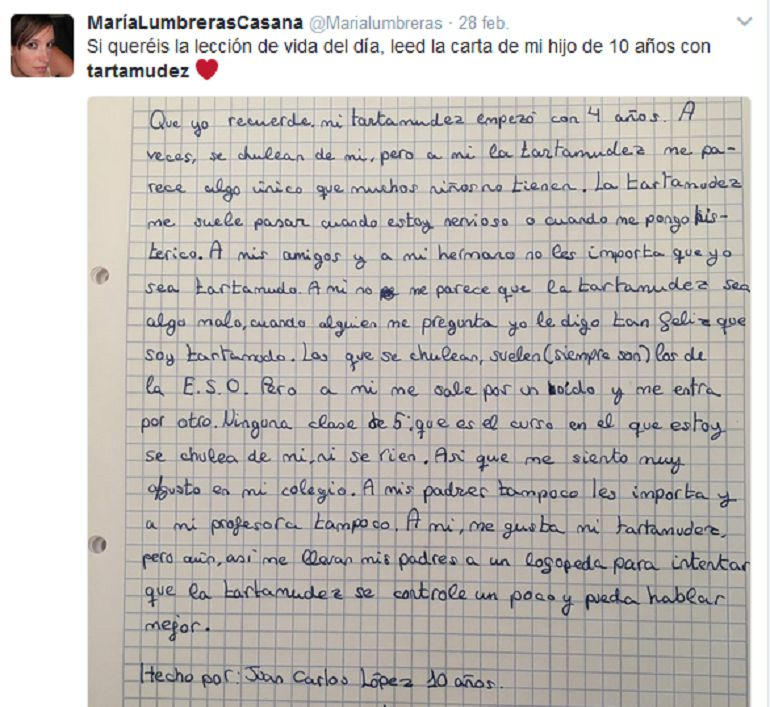 MaríaLumbrerasCasana @Marialumbreras · 28 feb.
Si queréis la lección de vida del día, leed la carta de mi hijo de 10 años con
tartamudez ❤
Que yo recuerde, mi tartamudez empezó con 4 años. A
veces, se chulean de mi, pero a mi la tartamudez me pa-
rece algo único que muchos niños no tienen. La tartamudez
me suele pasar cuando estoy nervioso o cuando me pongo his-
terico. A mis amigos y a mi hermano no les importa que yo
sea tartamudo. A mi no me parece que la tartamudez sea
algo malo, cuando alguien me pregunta yo le digo tan feliz que
soy tartamudo. Los que se chulean, suelen (siempre son) los de
la E.S.O. Pero a mi me sale por un oido y me entra
por otro. Ninguna clase de 5: que es el curso en el que estoy
se chulea de mi, ni se rien. Asi que me siento muy
agusto en mi colegio. A mis padres tampoco les importa y
a mi profesora tampoco. A mi, me gusta mi tartamudez,
pero aún, así me llevan mis padres a un logopeda para intentar
que la tartamudez se controle un poco y pueda hablar
mejor.
Hecho por: Juan Carlos López 10 años.